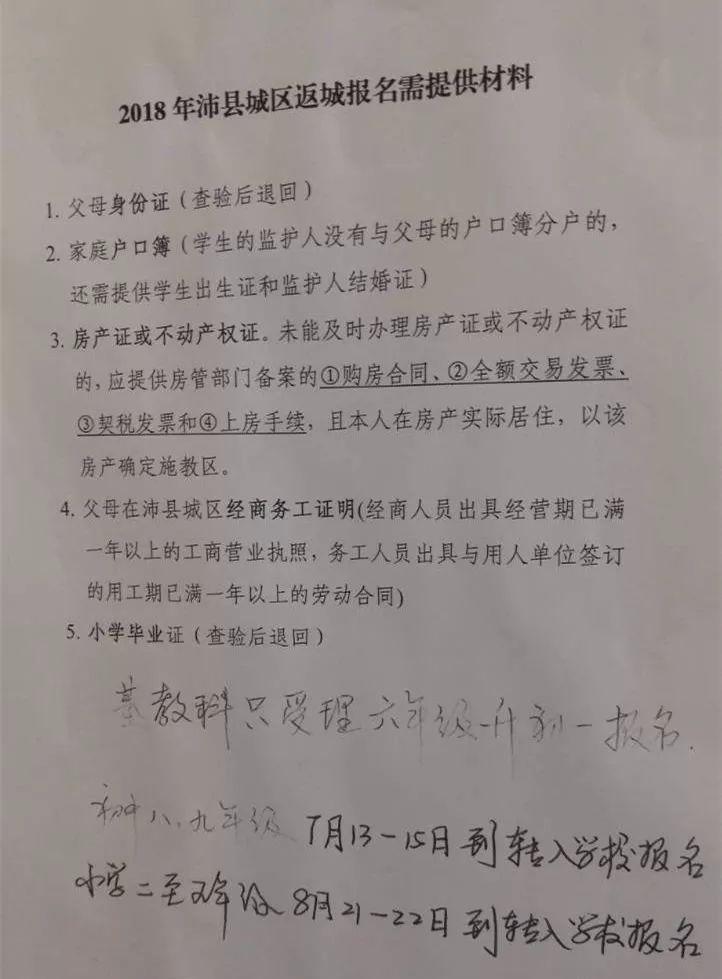 2018年沛县城区返城报名需提供材料
1. 父母身份证（查验后退回）
2. 家庭户口簿（学生的监护人没有与父母的户口簿分户的，
还需提供学生出生证和监护人结婚证）
3. 房产证或不动产权证。未能及时办理房产证或不动产权证
的，应提供房管部门备案的①购房合同、②全额交易发票、
③契税发票和④上房手续，且本人在房产实际居住，以该
房产确定施教区。
4. 父母在沛县城区经商务工证明(经商人员出具经营期已满
一年以上的工商营业执照，务工人员出具与用人单位签订
的用工期已满一年以上的劳动合同)
5. 小学毕业证（查验后退回）
基教科只受理六年级升初一报名.
初中八、九年级 7月13-15日到转入学校报名
小学二至五年级 8月21-22日到转入学校报名